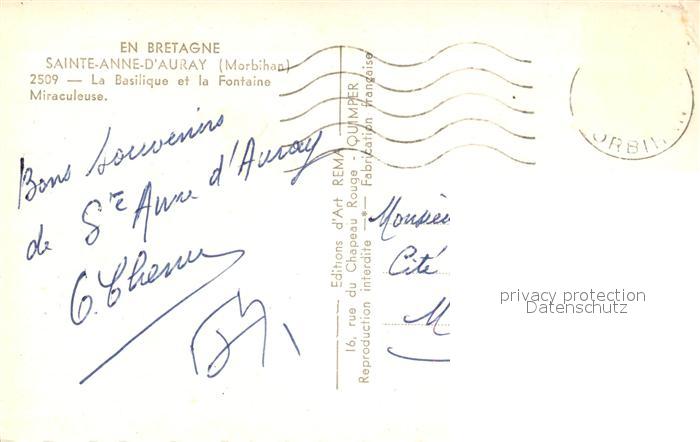 EN BRETAGNE
SAINTE-ANNE-D'AURAY (Morbihan)
2509 — La Basilique et la Fontaine
Miraculeuse.
Bons souvenirs
de Ste Anne d'Auray
Editions d'Art REMA - QUIMPER
16, rue du Chapeau Rouge
Reproduction Interdite —*— Fabrication française
ORBIH
Monsieu
Cité
M
privacy protection
Datenschutz